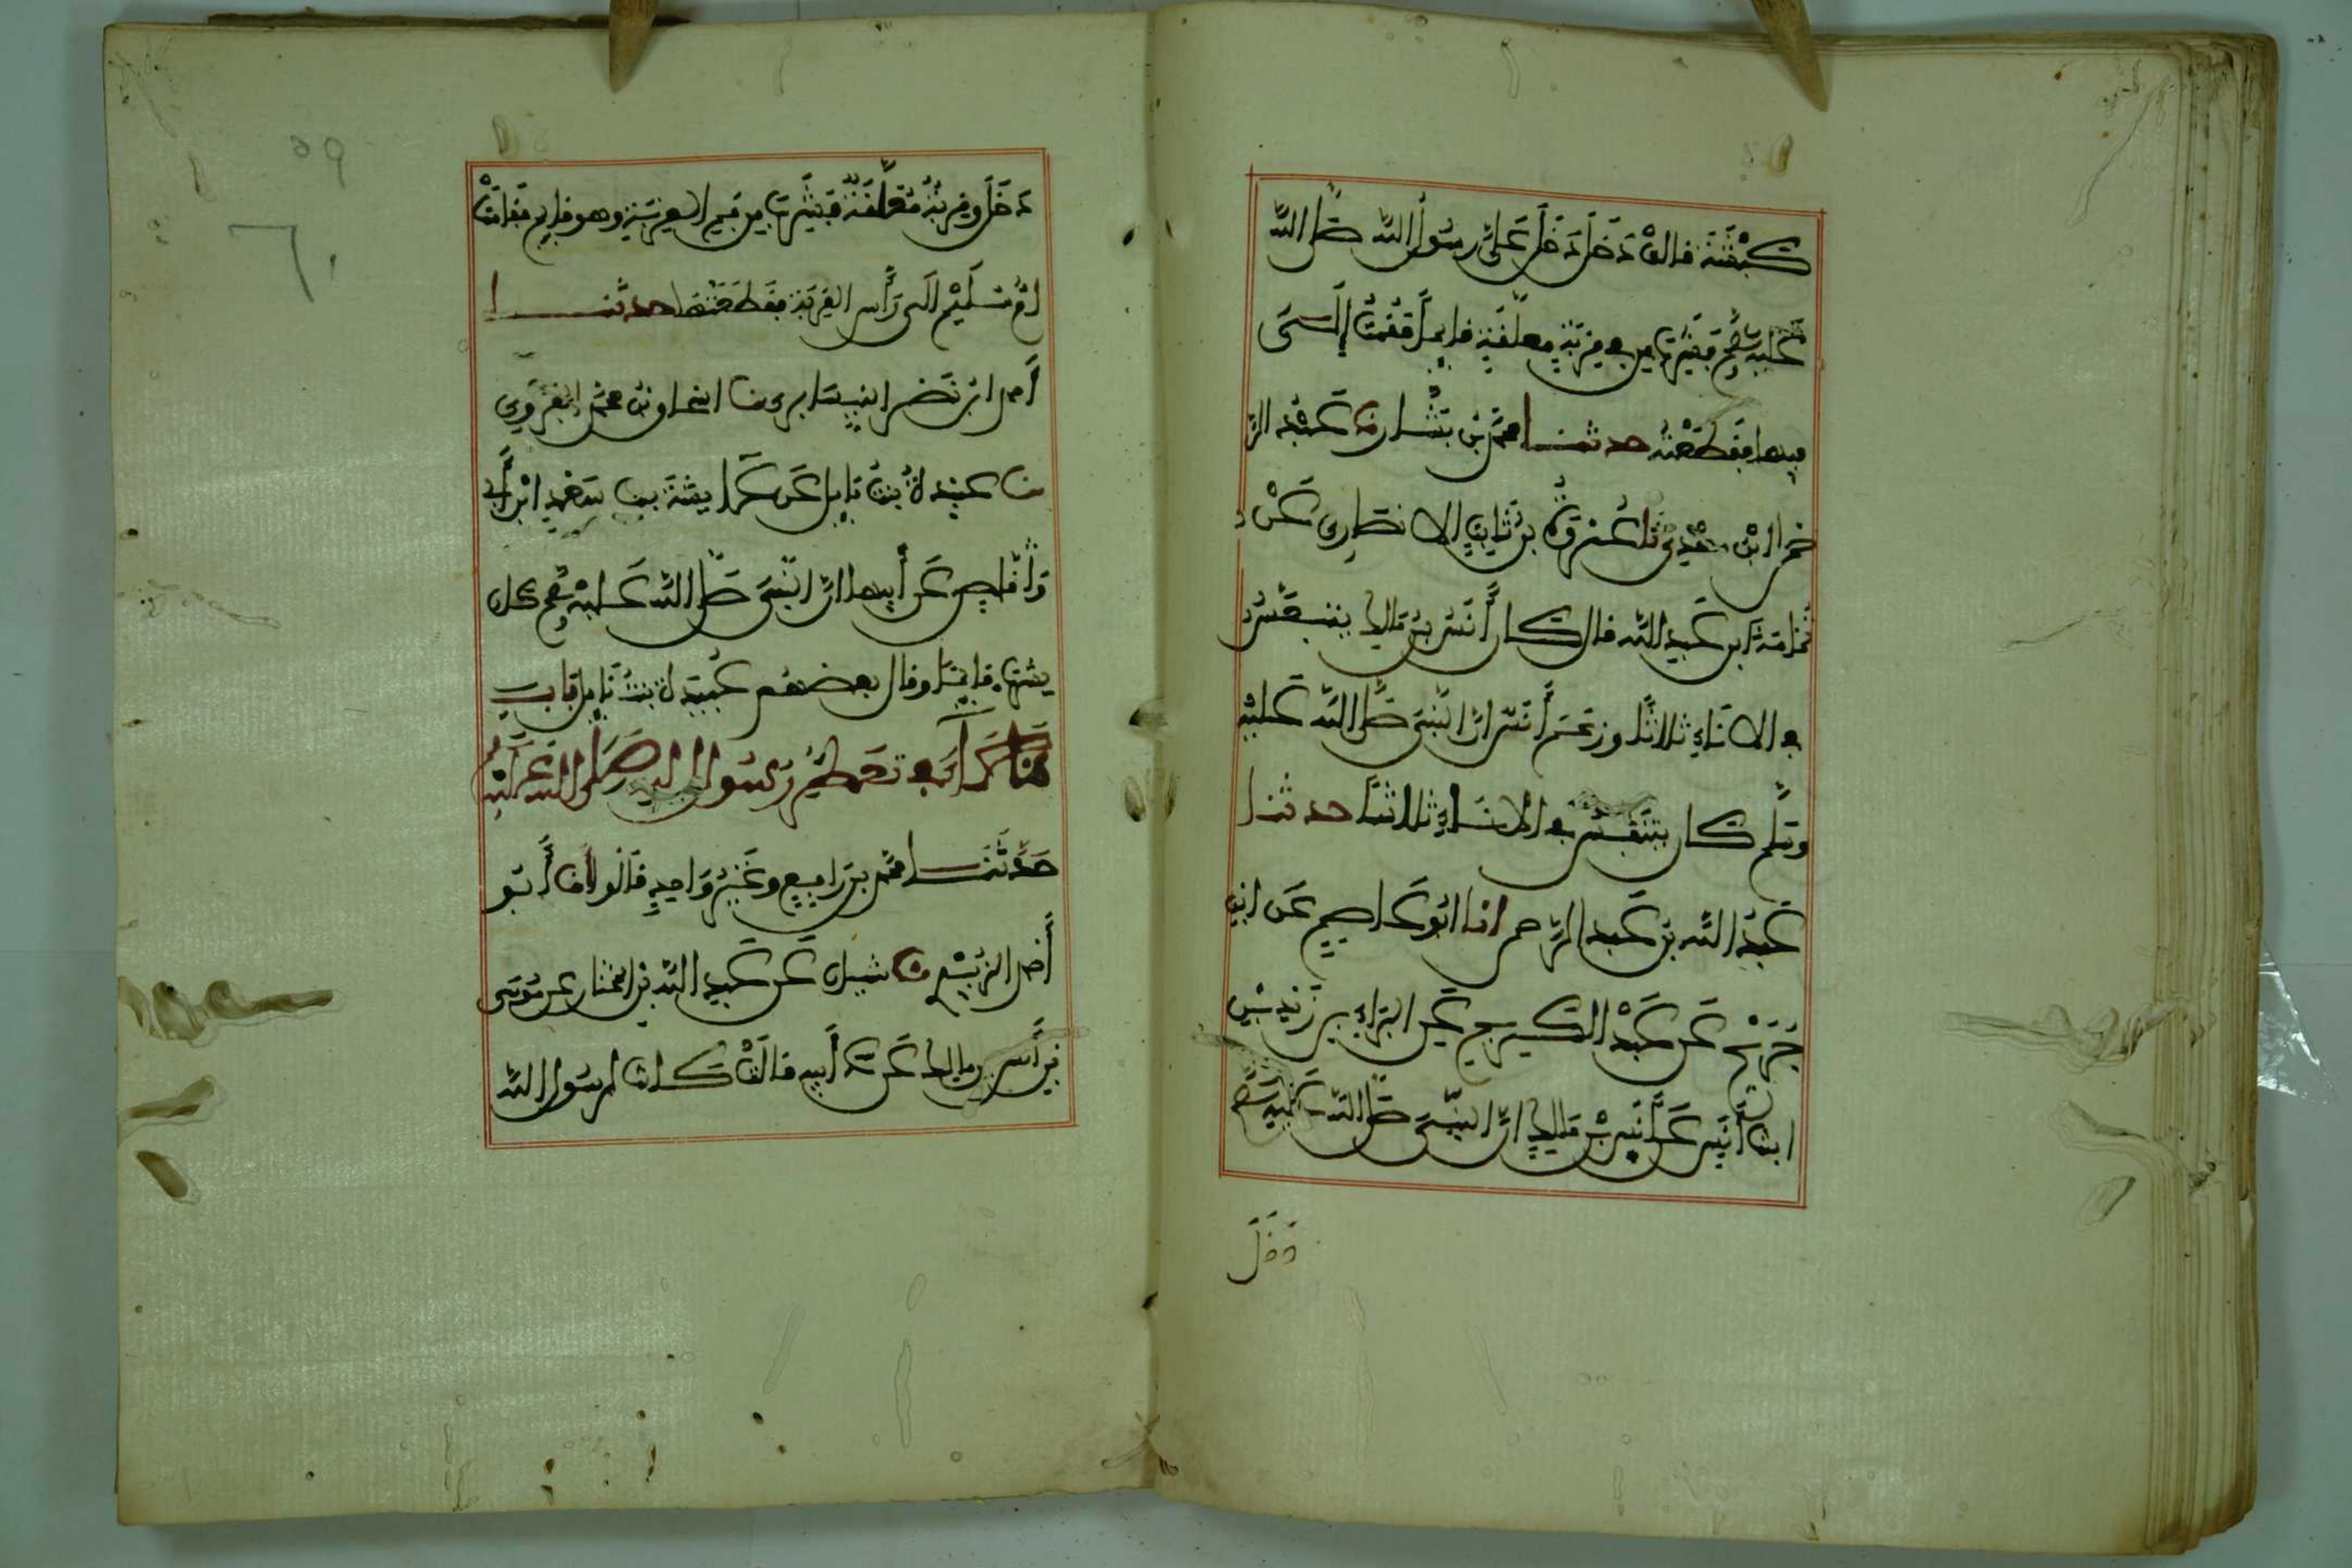 كبشة قالت دخل دخل على رسول الله صلى الله
عليه وسلم فشرب من في قربة معلقة قايما فقمت إلى
فيها فقطعته حدثنا محمد بن بشار نا عبد الر
حمن ابن مهدي ثنا عزرة بن ثابت الانصاري عن
ثمامة ابن عبد الله قال كان أنس بن مالك يتنفس
في الاناء ثلاثا وزعم أنس ان النبي صلى الله عليه
وسلم كان يتنفس في الاناء ثلاثا حدثنا
عبد الله بن عبد الرحمن انا ابو عاصم عن ابن
جريج عن عبد الكريم عن البراء بن زيد بن
ابنة أنس عن أنس بن مالك ان النبي صلى الله عليه وسلم
دخل
٥٩
٦٠
دخل وقربة معلقة فشرب من فم القربة وهو قايم فقامت
ام سليم الى رأس القربة فقطعتها حدثنا
احمد ابن نضر النيسابوري نا اسحاق بن محمد الفروي
نا عبيدة بنت نايل عن عايشة بنت سعد ابن أبي
وقاص عن أبيها ان النبي صلى الله عليه وسلم كان
يشرب قايما وقال بعضهم عبيدة بنت نابل باب
ما جاء في تعطر رسول الله صلى الله عليه
حدثنا محمد بن رافع وغير واحد قالوا انا أبو
أحمد الزبيري نا شيبان عن عبد الله بن المختار عن موسى
بن أنس بن مالك عن أبيه قال كانت لرسول الله